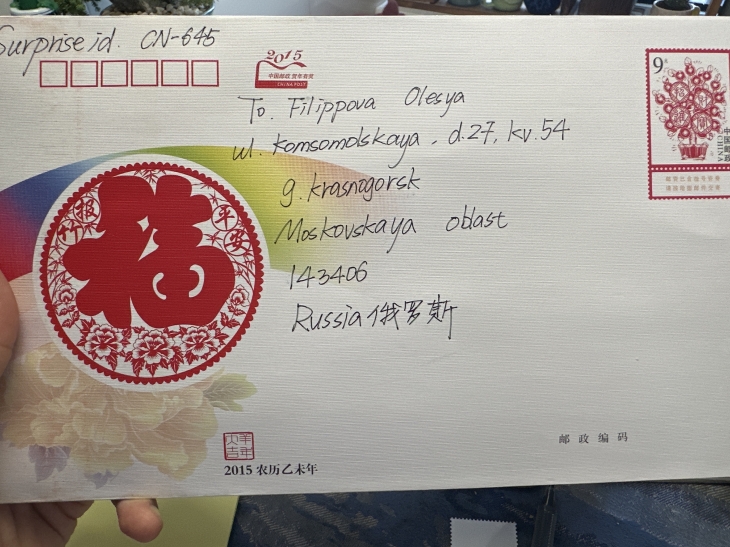 Surprise id. CN-645
2015
中国邮政 贺年有奖
CHINA POST
9元
中国邮政
CHINA
To. Filippova Olesya
ul. Komsomolskaya, d.27, kv.54
g. Krasnogorsk
Moskovskaya oblast
143406
Russia 俄罗斯
竹报
平安
福
羊年
大吉
2015 农历乙未年
邮政编码